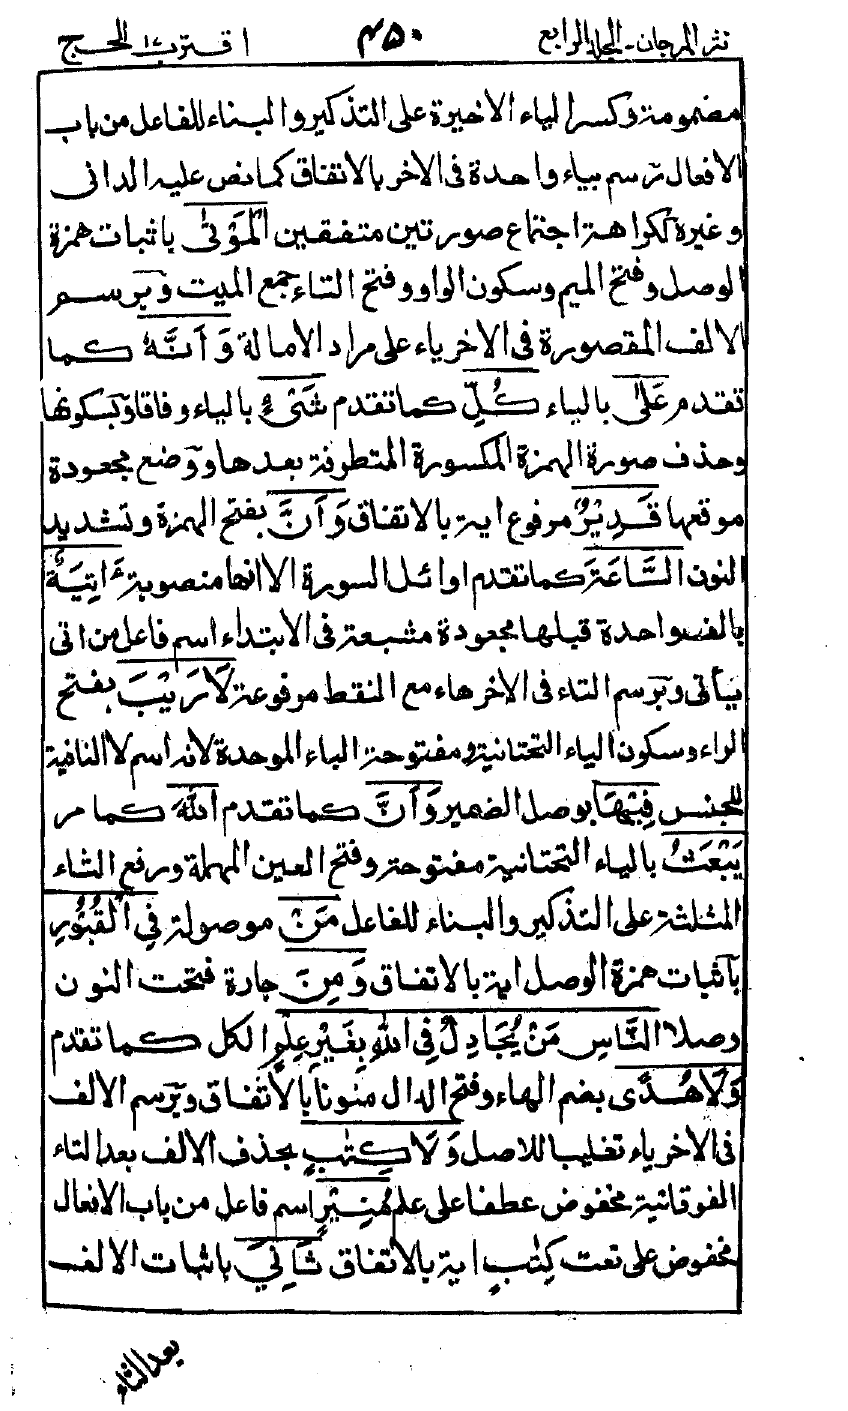 نثر المرجان - المجلد الرابع
۴۵۰
اقترب ١٧ الحج
مضمومة وكسر الياء الاخيرة على التذكير والبناء للفاعل من باب
الافعال ترسم بياء واحدة فى الاخر بالاتفاق كما نص عليه الدانى
وغيره لكراهة اجتماع صورتين متفقين الْمَوْتٰى باثبات همزة
الوصل وفتح الميم وسكون الواو وفتح التاء جمع الميت وبرسم
الالف المقصورة فى الاخر ياء على مراد الامالة وَاَنَّهٗ كما
تقدم عَلٰى بالياء كُلِّ كما تقدم شَىْءٍ بالياء وفاقا وبسكونها
وحذف صورة الهمزة المكسورة المتطرفة بعدها ووضع مجعودة
موقعها قَدِيْرٌ مرفوع اية بالاتفاق وَاَنَّ بفتح الهمزة وتشديد
النون السَّاعَةَ كما تقدم اوائل السورة الا انها منصوبة ءَاتِيَةٌ
بالف واحدة قبلها مجعودة مشبعة فى الابتداء اسم فاعل من اتى
يأتى وبرسم التاء فى الاخر هاء مع النقط مرفوعة لَارَيْبَ بفتح
الراء وسكون الياء التحتانية ومفتوحة الباء الموحدة لانه اسم لا النافية
للجنس فِيْهَا بوصل الضمير وَاَنَّ كما تقدم اللهَ كما مر
يَبْعَثُ بالياء التحتانية مفتوحة وفتح العين المهملة ورفع الثاء
المثلثة على التذكير والبناء للفاعل مَنْ موصولة فِى الْقُبُوْرِ
باثبات همزة الوصل اية بالاتفاق وَمِنَ جارة فتحت النون
وصلا النَّاسِ مَنْ يُّجَادِلُ فِى اللهِ بِغَيْرِ عِلْمٍ الكل كما تقدم
وَّلَا هُدًى بضم الهاء وفتح الدال منونا بالاتفاق وبرسم الالف
فى الاخر ياء تغليبا للاصل وَّلَا كِتٰبٍ بحذف الالف بعد التاء
الفوقانية مخفوض عطفا على علم مُّنِيْرٍ اسم فاعل من باب الافعال
مخفوض على نعت كِتٰبٍ اية بالاتفاق ثَانِىَ باثبات الالف
بعد الثاء